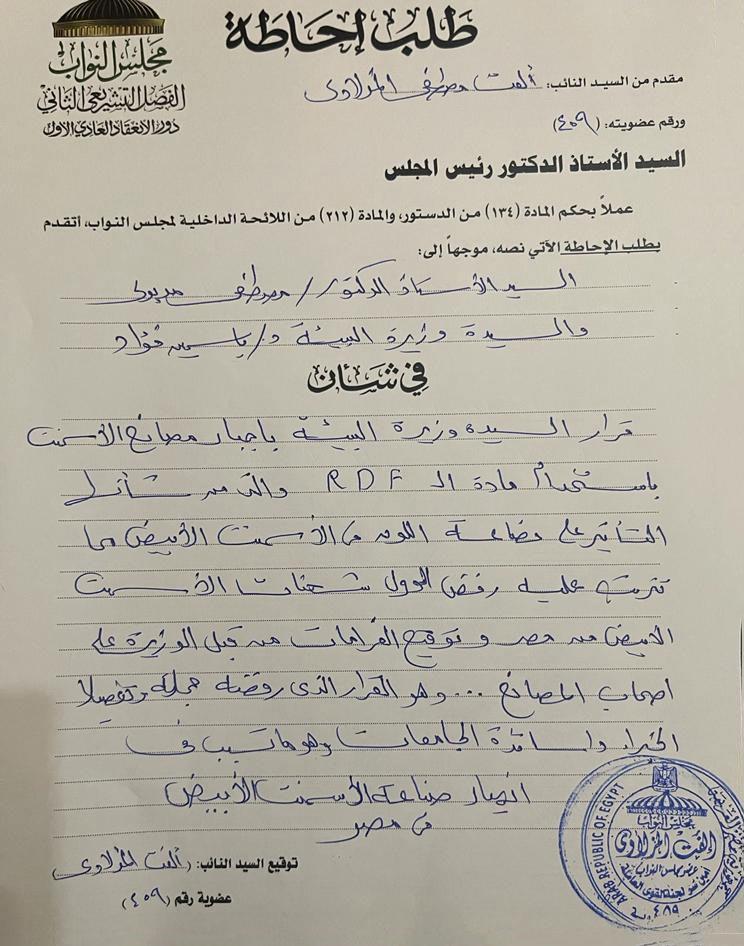 طلب إحاطة
مجلس النواب
الفصل التشريعى الثانى
دور الانعقاد العادى الأول
مقدم من السيد النائب: ألفت مصطفى المزلاوى
ورقم عضويته: (٤٥٩)
السيد الأستاذ الدكتور رئيس المجلس
عملاً بحكم المادة (١٣٤) من الدستور، والمادة (٢١٢) من اللائحة الداخلية لمجلس النواب، أتقدم
بطلب الإحاطة الآتي نصه، موجهاً إلى:
السيد الأستاذ الدكتور / مصطفى مدبولى
والسيدة وزيرة البيئة د/ ياسمين فؤاد
في شأن
قرار السيدة وزيرة البيئة باجبار مصانع الأسمنت
باستخدام مادة الـ RDF والتى من شأنها
التأثير على نصاعة اللون فى الأسمنت الأبيض مما
ترتب عليه رفض الدول شحنات الأسمنت
الابيض من مصر وتوقيع الغرامات من قبل الوزيرة على
اصحاب المصانع ... وهو القرار الذى رفضه جملة وتفصيلا
الخبراء واساتذة الجامعات وهو ماتسبب فى
انهيار صناعة الأسمنت الأبيض
فى مصر
توقيع السيد النائب: (ألفت المزلاوى)
عضوية رقم (٤٥٩)
ARAB REPUBLIC OF EGYPT
مجلس النواب
ألفت المزلاوى
عضو مجلس النواب
أمين سر لجنة القوى العاملة